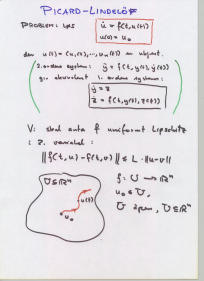 PICARD-LINDELÖF
PROBLEM: LØS
u̇ = f(t, u(t))
u(0) = u₀
den u(t) = (u₁(t), ..., uₙ(t)) er
2. ordens system: ÿ = f(t, y(t), ẏ(t))
ekvivalent 1. ordens system:
ẏ = z
ż = f(t, y(t), z(t))
V: skal anta f uniformt Lipschitz
i 2. variabel:
||f(t, u) - f(t, v)|| ≤ L · ||u-v||
U ⊆ ℝⁿ
u(t)
u₀
f: U → ℝⁿ
u₀ ∈ U,
U åpen, U ⊆ ℝⁿ